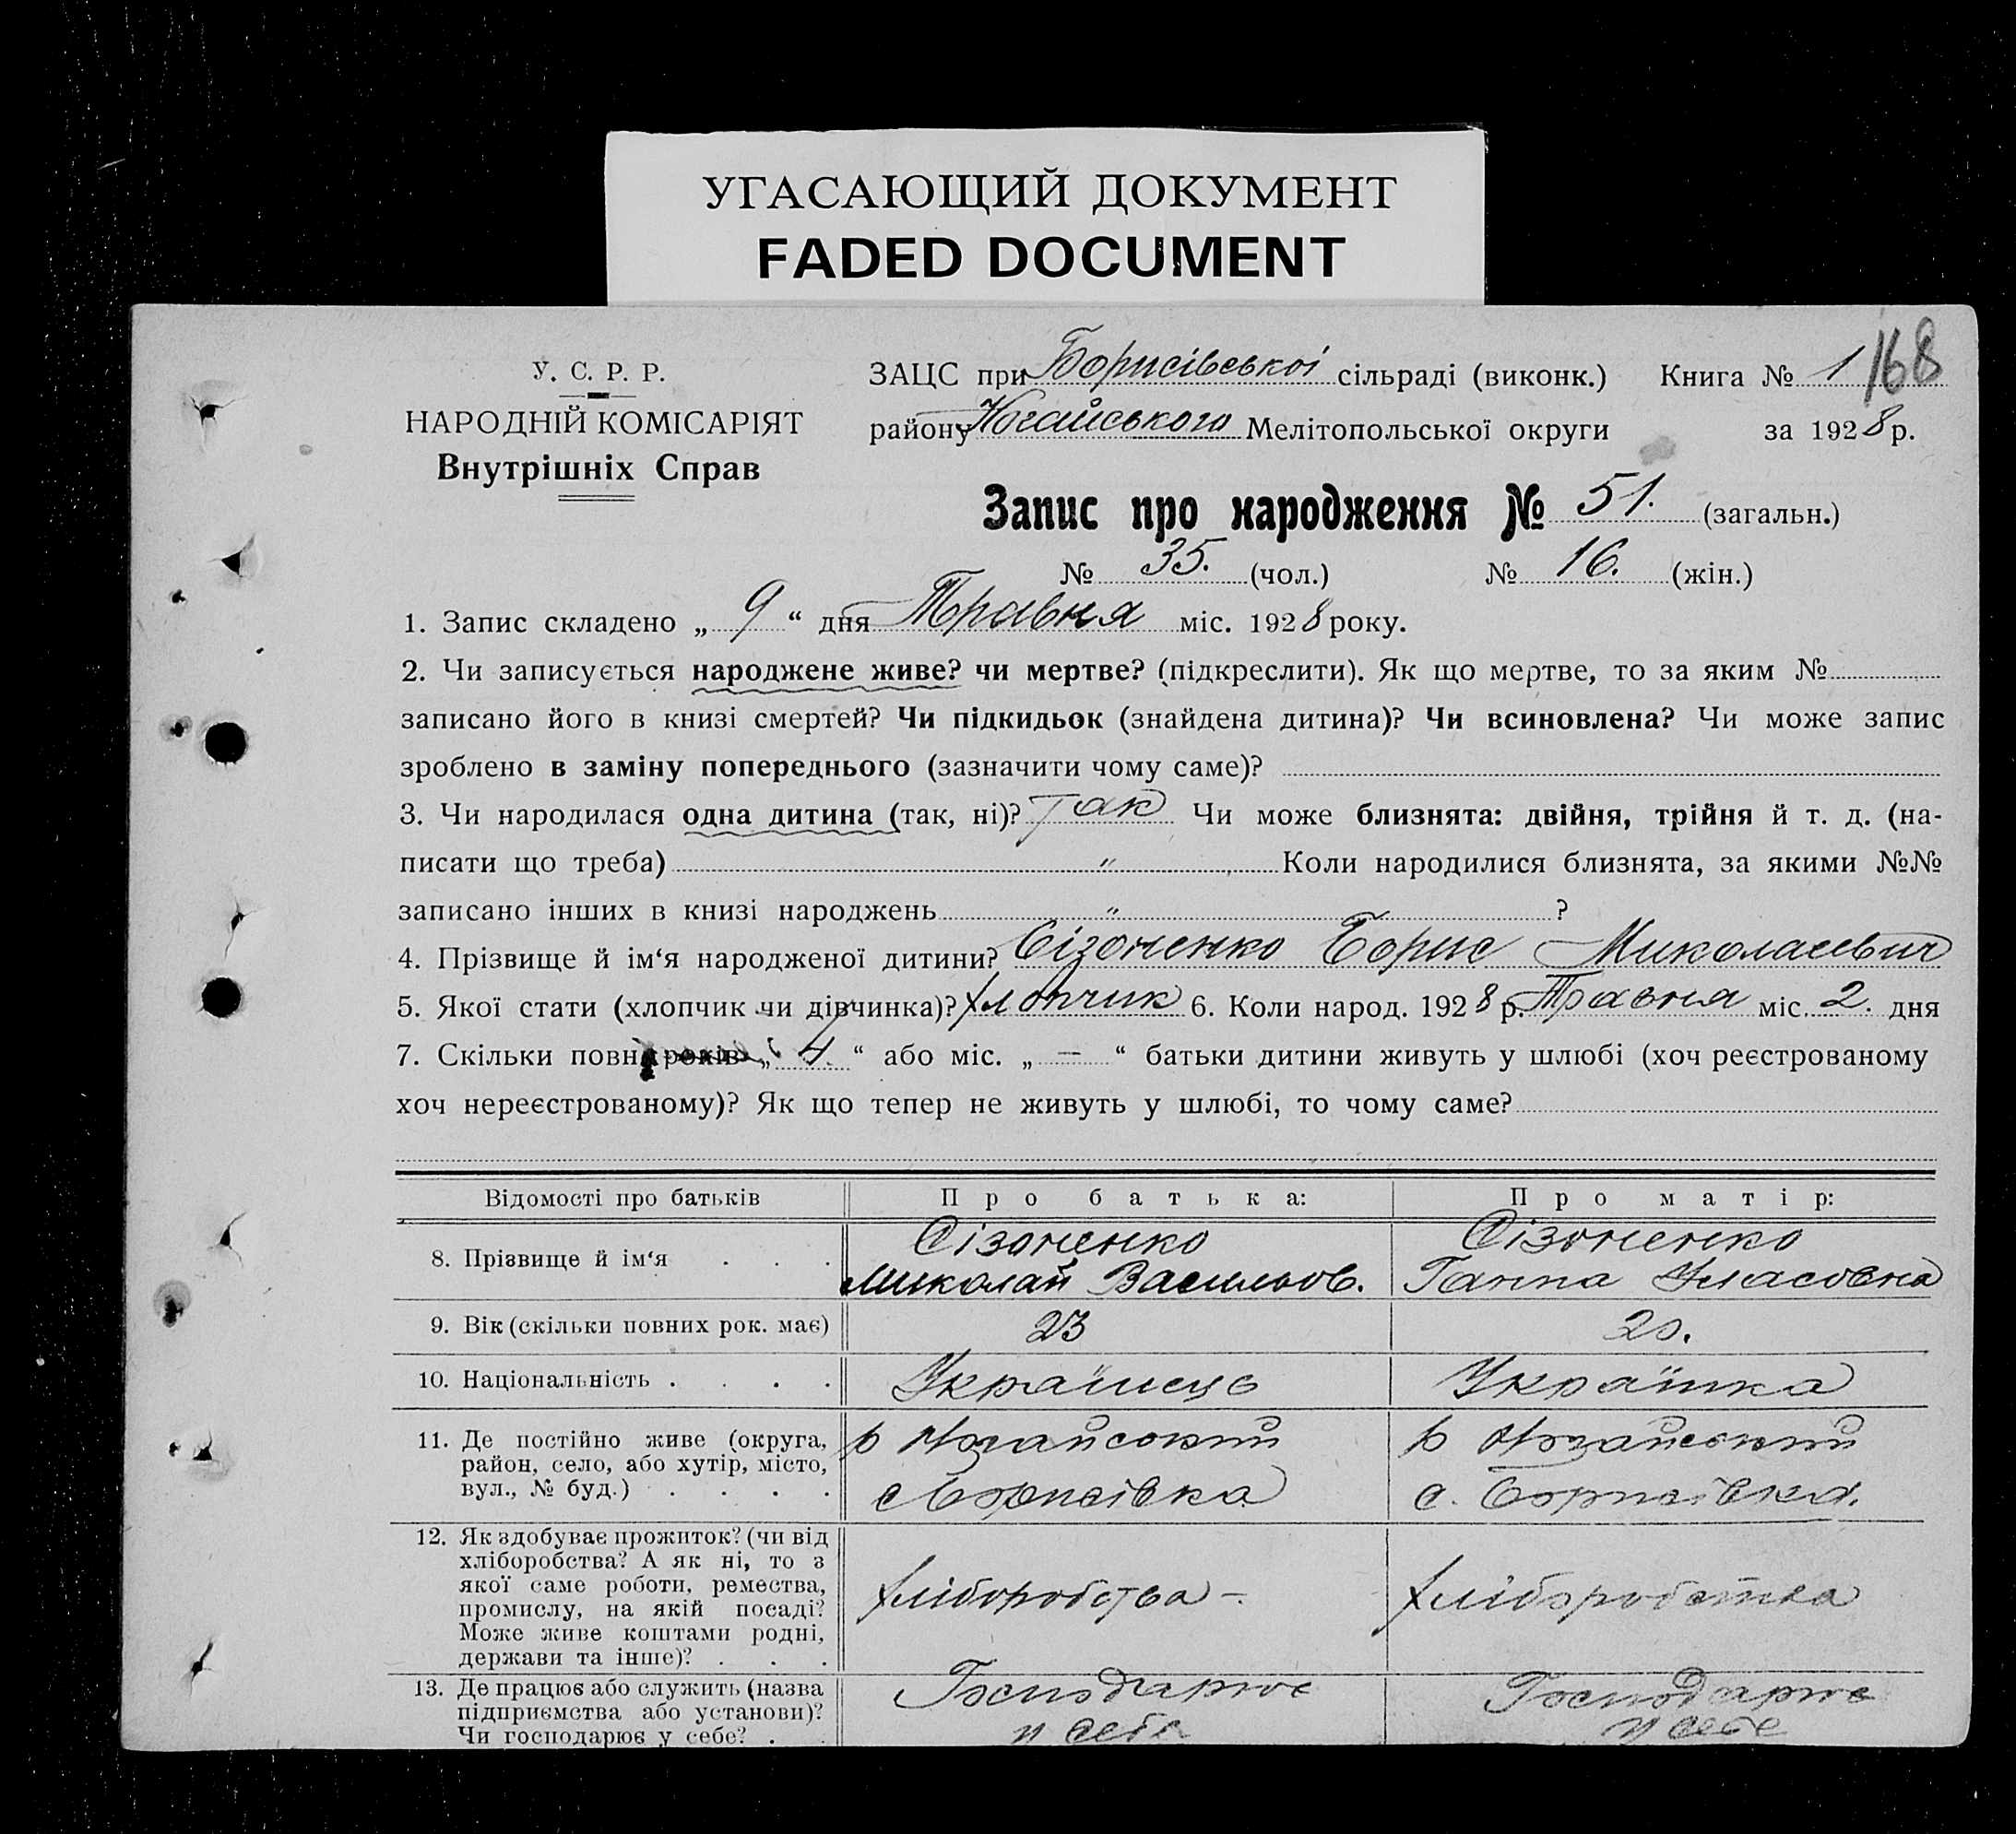 УГАСАЮЩИЙ ДОКУМЕНТ
FADED DOCUMENT
168
У. С. Р. Р.
НАРОДНІЙ КОМІСАРІЯТ
Внутрішніх Справ
ЗАЦС при Борисівської сільраді (виконк.) Книга № 1
району Ногайського Мелітопольської округи за 1928 р.
Запис про народження № 51. (загальн.)
№ 35. (чол.) № 16. (жін.)
1. Запис складено „ 9 “ дня Травня міс. 1928 року.
2. Чи записується народжене живе? чи мертве? (підкреслити). Як що мертве, то за яким №
записано його в книзі смертей? Чи підкидьок (знайдена дитина)? Чи всиновлена? Чи може запис
зроблено в заміну попереднього (зазначити чому саме)?
3. Чи народилася одна дитина (так, ні)? Так Чи може близнята: двійня, трійня й т. д. (на-
писати що треба) „ Коли народилися близнята, за якими №№
записано інших в книзі народжень „ ?
4. Прізвище й ім‘я народженої дитини? Сізоненко Борис Миколаєвич
5. Якої стати (хлопчик чи дівчинка)? Хлопчик 6. Коли народ. 1928 р. Травня міс. 2. дня
7. Скільки повн років „ 4 “ або міс. „ — “ батьки дитини живуть у шлюбі (хоч реєстрованому
хоч нереєстрованому)? Як що тепер не живуть у шлюбі, то чому саме?
Відомості про батьків Про батька: Про матір:
8. Прізвище й ім‘я . . . Сізоненко Миколай Васильов. Сізоненко Ганна Уласовна
9. Вік (скільки повних рок. має) 23 20.
10. Національність . . . . Українець Українка
11. Де постійно живе (округа, р Ногайський р Ногайський
район, село, або хутір, місто,
вул., № буд.) . . . . с Борисівка с. Борисівка.
12. Як здобуває прожиток? (чи від
хліборобства? А як ні, то з
якої саме роботи, ремества, Хліборобства – Хліборобства
промислу, на якій посаді?
Може живе коштами родні,
держави та інше)? . . .
13. Де працює або служить (назва Господарює Господарює
підприємства або установи)?
Чи господарює у себе? . у себе у себе